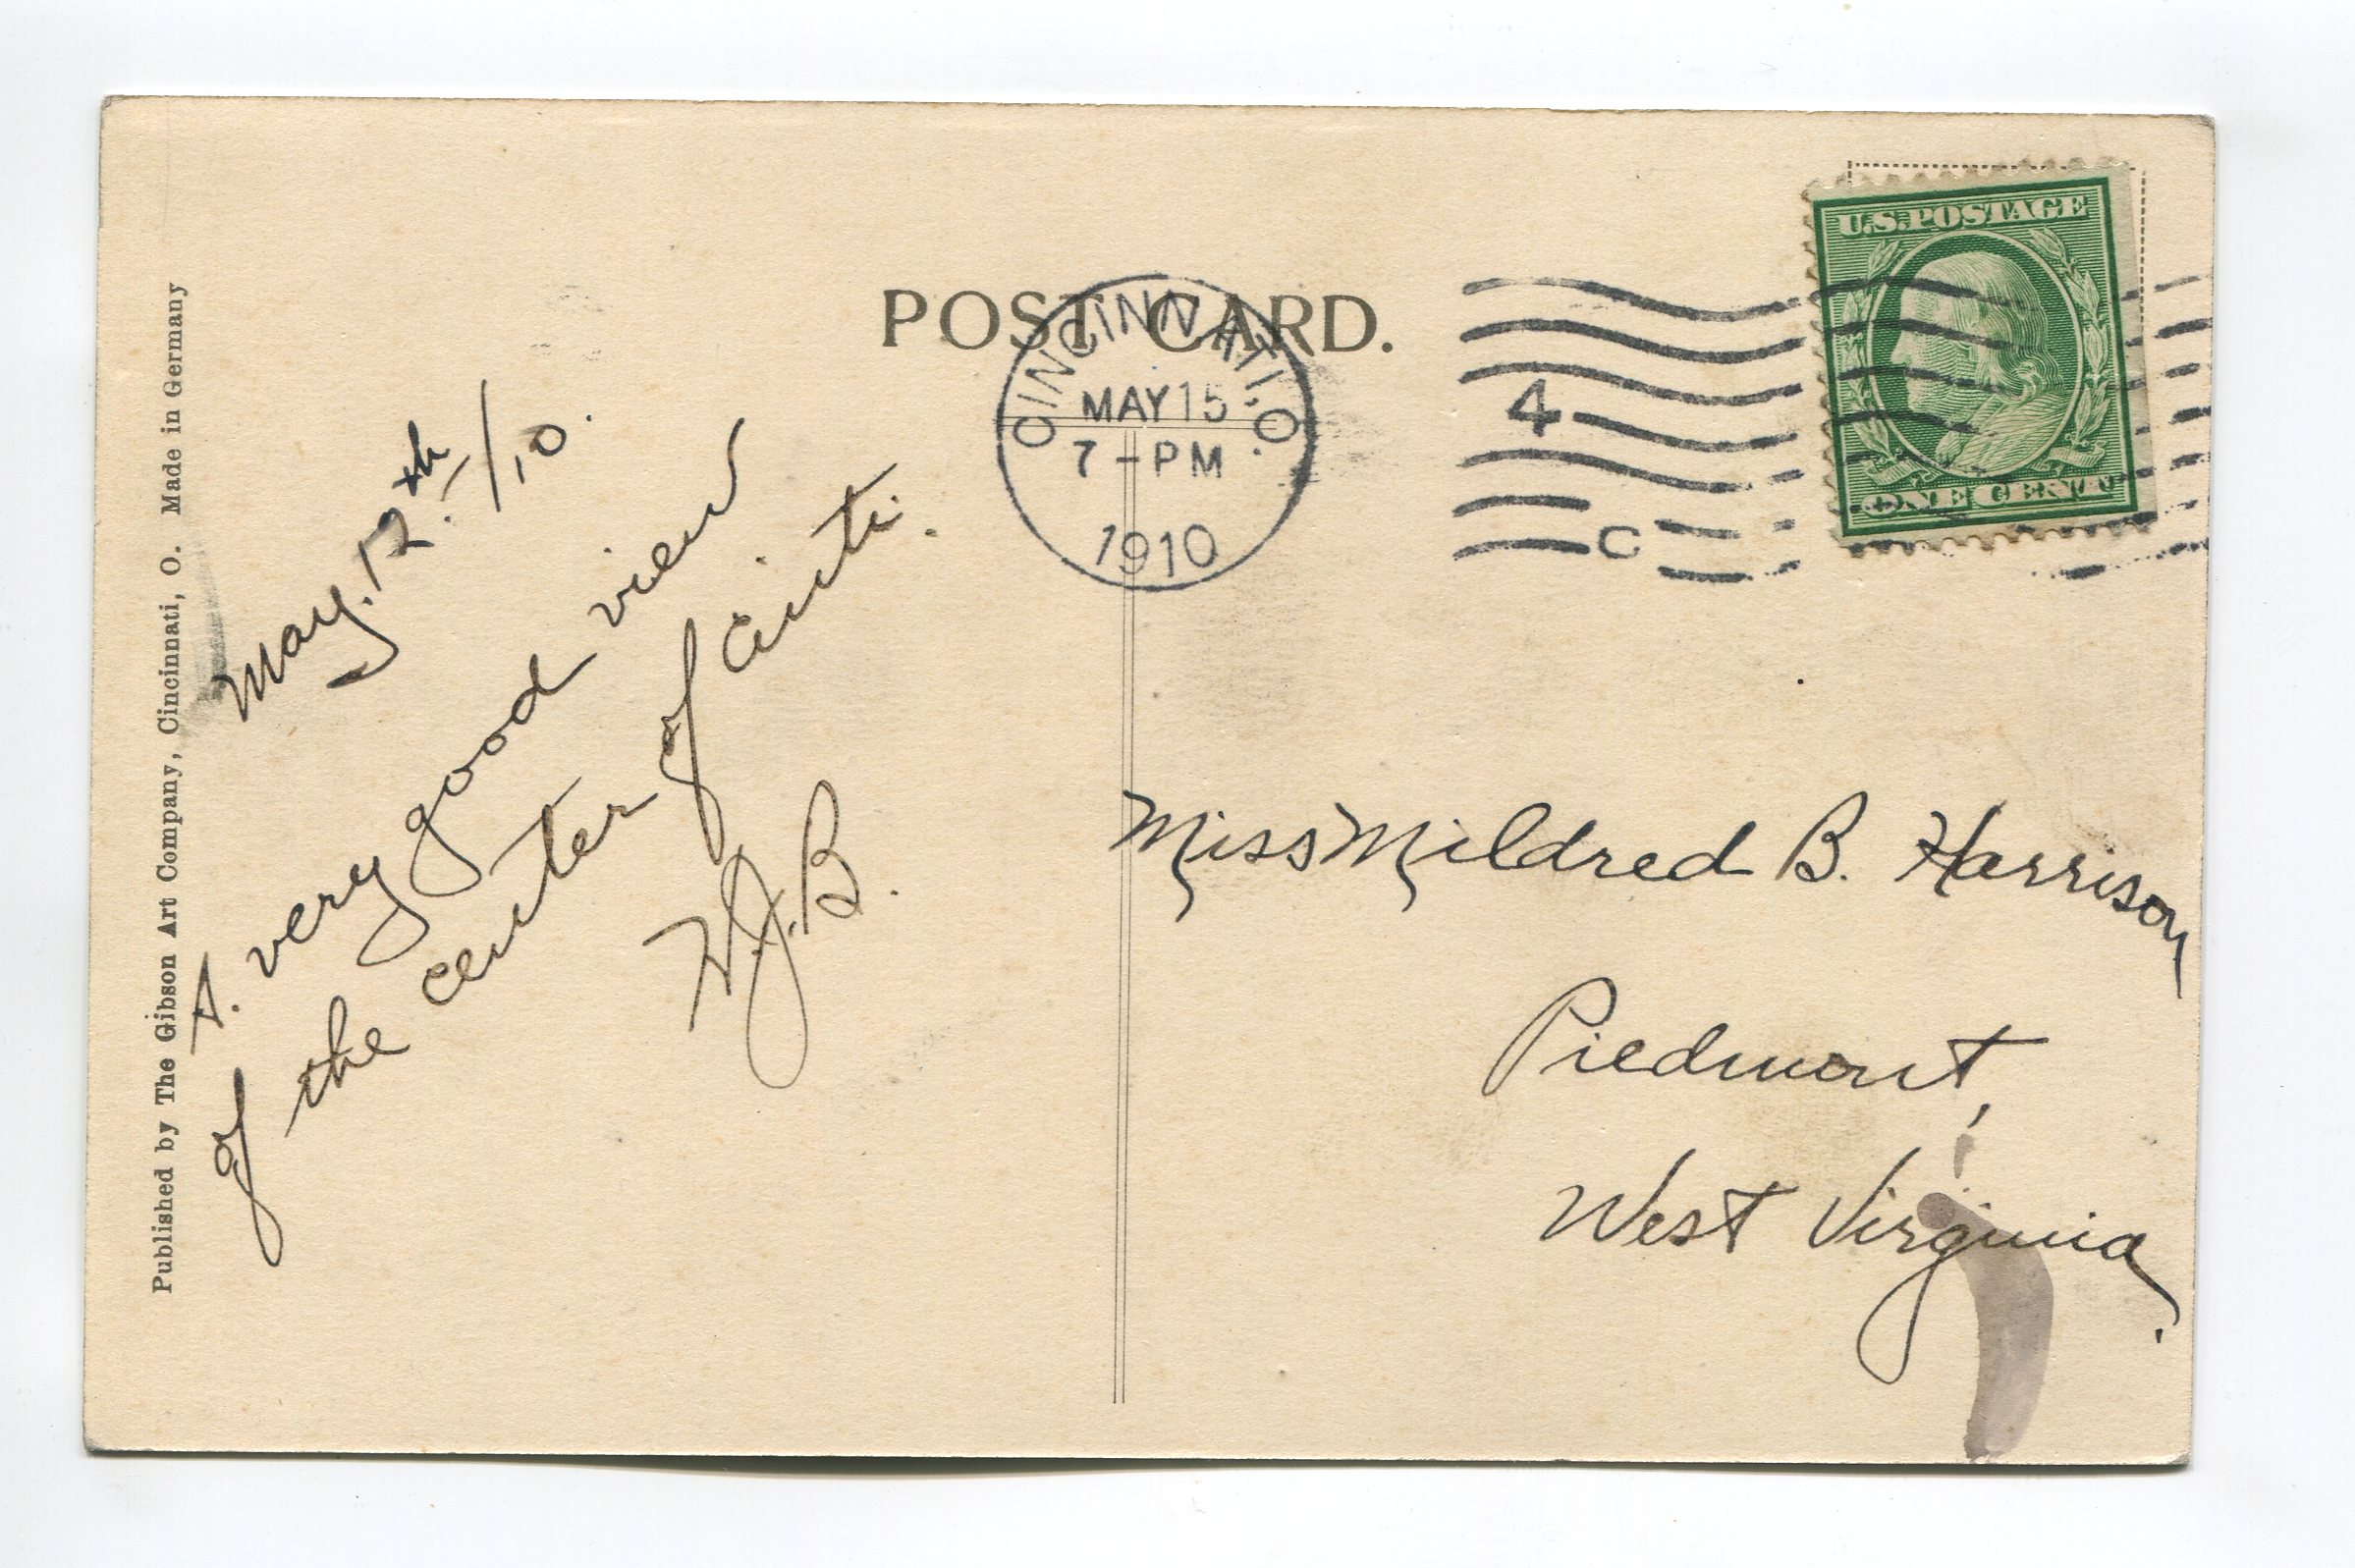 POST CARD.
CINCINNATI, O.
MAY 15
7-PM
1910
4
C
U.S. POSTAGE
ONE CENT
Published by The Gibson Art Company, Cincinnati, O. Made in Germany
May. 12th. /10.
A. very good view
of the center of Cinti.
H.J.B.
Miss Mildred B. Harrison
Piedmont,
West Virginia.